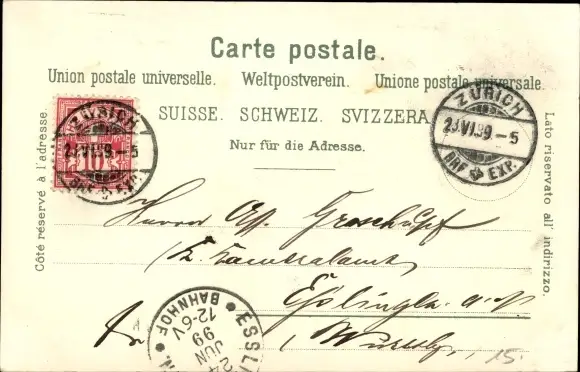 Carte postale.
Union postale universelle. Weltpostverein. Unione postale universale.
SUISSE. SCHWEIZ. SVIZZERA
Nur für die Adresse.
Côté réservé à l'adresse.
Lato riservato all' indirizzo.
ZÜRICH
23.VI.99-5
BRF EXP.
10
ZÜRICH
23.VI.99-5
BRF EXP.
Herrn Ass. Groschupf
K. Kameralamt
Esslingen a. N.
ESSLI
BAHNHOF
24
JUN
99
12-6V
15.